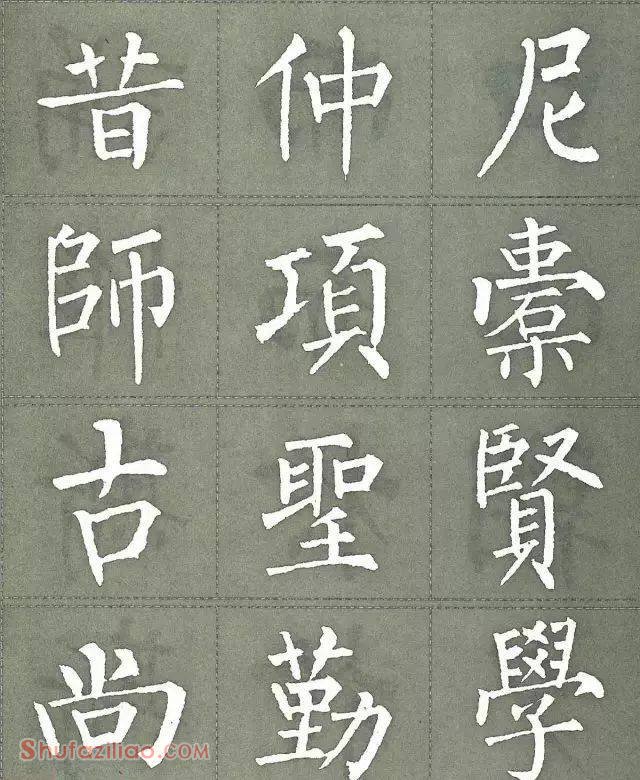 昔仲尼
師項橐
古聖賢
尚勤學
Shufaziliao.COM